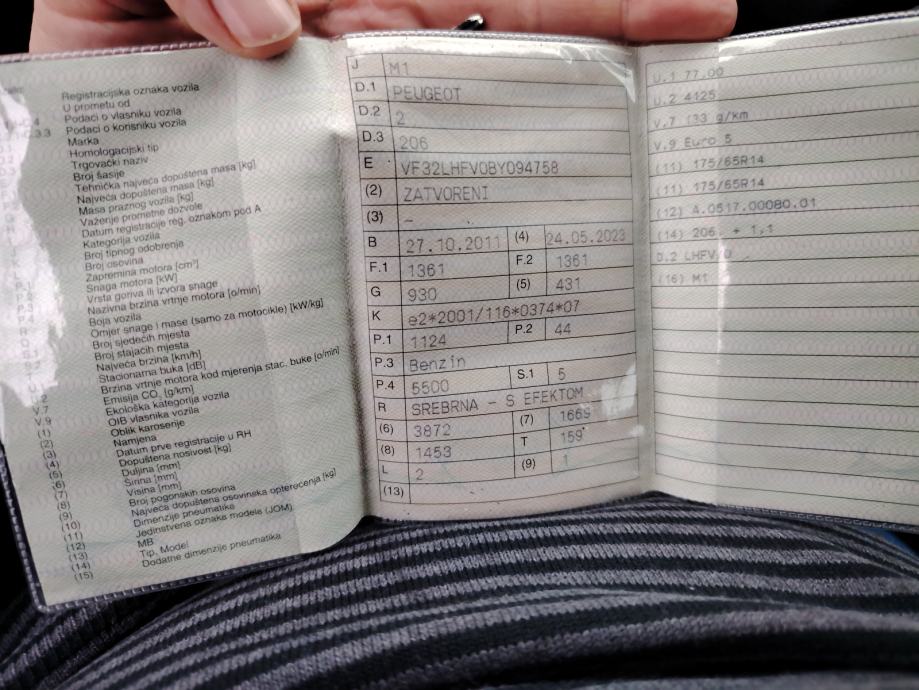 Registracijska oznaka vozila
U prometu od
Podaci o vlasniku vozila
Podaci o korisniku vozila
Marka
Homologacijski tip
Trgovački naziv
Broj šasije
Tehnička najveća dopuštena masa [kg]
Najveća dopuštena masa [kg]
Masa praznog vozila [kg]
Važenje prometne dozvole
Datum registracije reg. oznakom pod A
Kategorija vozila
Broj tipnog odobrenje
Broj osovina
Zapremina motora [cm³]
Snaga motora [kW]
Vrsta goriva ili izvora snage
Nazivna brzina vrtnje motora [o/min]
Boja vozila
Omjer snage i mase (samo za motocikle) [kW/kg]
Broj sjedećih mjesta
Broj stajaćih mjesta
Najveća brzina [km/h]
Stacionarna buka [dB]
Brzina vrtnje motora kod mjerenja stac. buke [o/min]
Emisija CO₂ [g/km]
V.7 Ekološka kategorija vozila
V.9 OIB vlasnika vozila
(1) Oblik karoserije
(2) Namjena
(3) Datum prve registracije u RH
(4) Dopuštena nosivost [kg]
(5) Duljina [mm]
(6) Širina [mm]
(7) Visina [mm]
(8) Broj pogonskih osovina
(9) Najveća dopuštena osovinska opterećenja [kg]
(10) Dimenzije pneumatika
(11) Jedinstvena oznaka modela (JOM)
(12) MB
(13) Tip, Model
(14) Dodatne dimenzije pneumatika
(15)
J M1
D.1 PEUGEOT
D.2 2
D.3 206
E VF32LHFV0BY094758
(2) ZATVORENI
(3) –
B 27.10.2011 (4) 24.05.2023
F.1 1361 F.2 1361
G 930 (5) 431
K e2*2001/116*0374*07
P.1 1124 P.2 44
P.3 Benzin
P.4 5500 S.1 5
R SREBRNA - S EFEKTOM
(6) 3872 (7) 1669
(8) 1453 T 159
L 2 (9) 1
(13)
U.1 77,00
U.2 4125
V.7 133 g/km
V.9 Euro 5
(11) 175/65R14
(11) 175/65R14
(12) A.0517.00080.01
(14) 206 + 1,1
D.2 LHFV/0
(16) M1